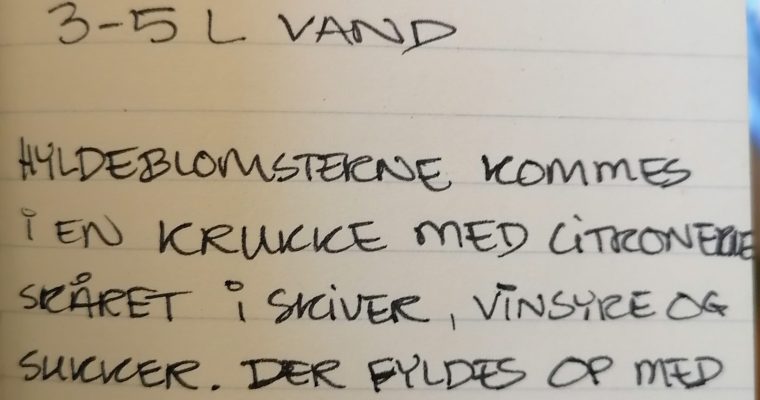 3-5 L VAND
HYLDEBLOMSTERNE KOMMES
i EN KRUKKE MED CiTRONERNE
SKÅRET i SKiVER, ViNSYRE OG
SUKKER. DER FYLDES OP MED